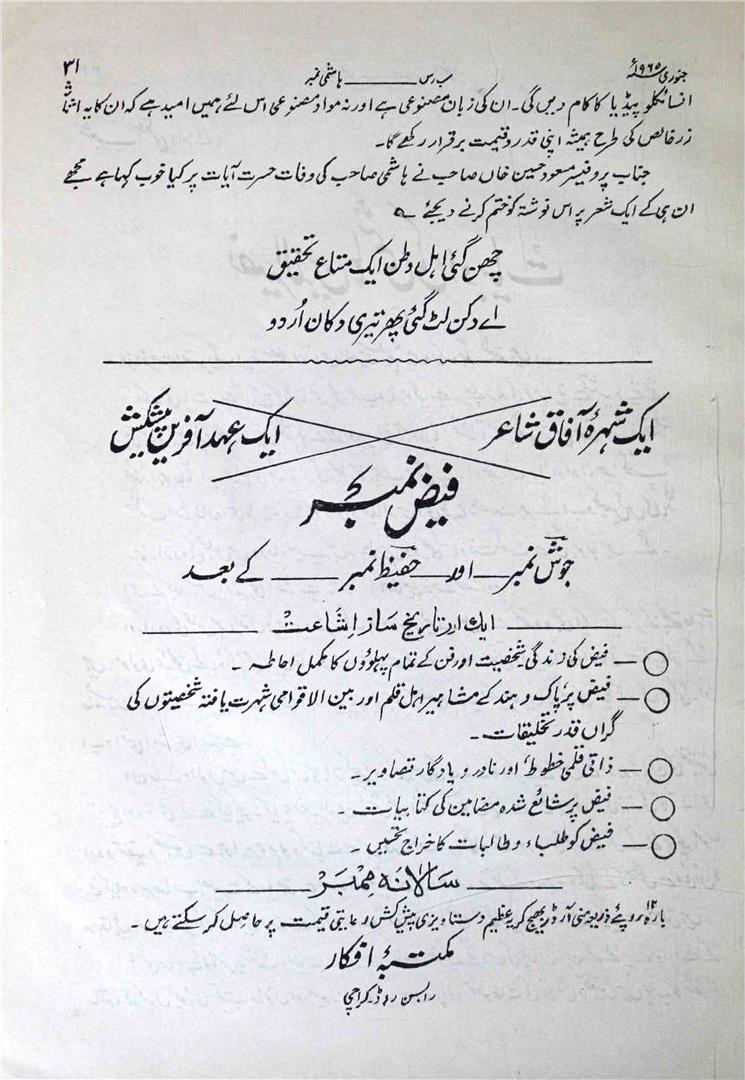 جنوری ۱۹۶۵ء سب رس ــــــ ہاشمی نمبر ۳۱
انسائکلو پیڈیا کا کام دیں گی۔ ان کی زبان مصنوعی ہے اور نہ مواد مصنوعی اس لئے ہمیں امید ہے کہ ان کا یہ اثاثہ
زر خالص کی طرح ہمیشہ اپنی قدر و قیمت برقرار رکھے گا۔
جناب پروفیسر مسعود حسین خاں صاحب نے ہاشمی صاحب کی وفات حسرت آیات پر کیا خوب کہا ہے مجھے
ان ہی کے ایک شعر پر اس نوشتہ کو ختم کرنے دیجئے ؎
چھن گئی اہل وطن ایک متاع تحقیق
اے دکن لٹ گئی پھر تیری دکان اُردو
ایک شہرۂ آفاق شاعر ایک عہد آفریں پیشکش
فیض نمبر
جوش نمبر ــــ اور ــــ حفیظ نمبر ــــــ کے بعد
ایک اور تاریخ ساز اشاعت
○ — فیض کی زندگی شخصیت اور فن کے تمام پہلوؤں کا مکمل احاطہ ۔
○ — فیض پر پاک و ہند کے مشاہیر اہل قلم اور بین الاقوامی شہرت یافتہ شخصیتوں کی
گراں قدر تخلیقات۔
○ — ذاتی قلمی خطوط، اور نادر و یادگار تصاویر۔
○ — فیض پر شائع شدہ مضامین کی کتابیات ۔
○ — فیض کو طلباء و طالبات کا خراج تحسیں ۔
سالانہ ممبر
بارہ۱۲ روپئے ذریعہ منی آرڈر بھیج کر یہ عظیم دستاویزی پیش کش رعایتی قیمت پر حاصل کر سکتے ہیں ۔
مکتبۂ افکار
رابسن روڈ، کراچی